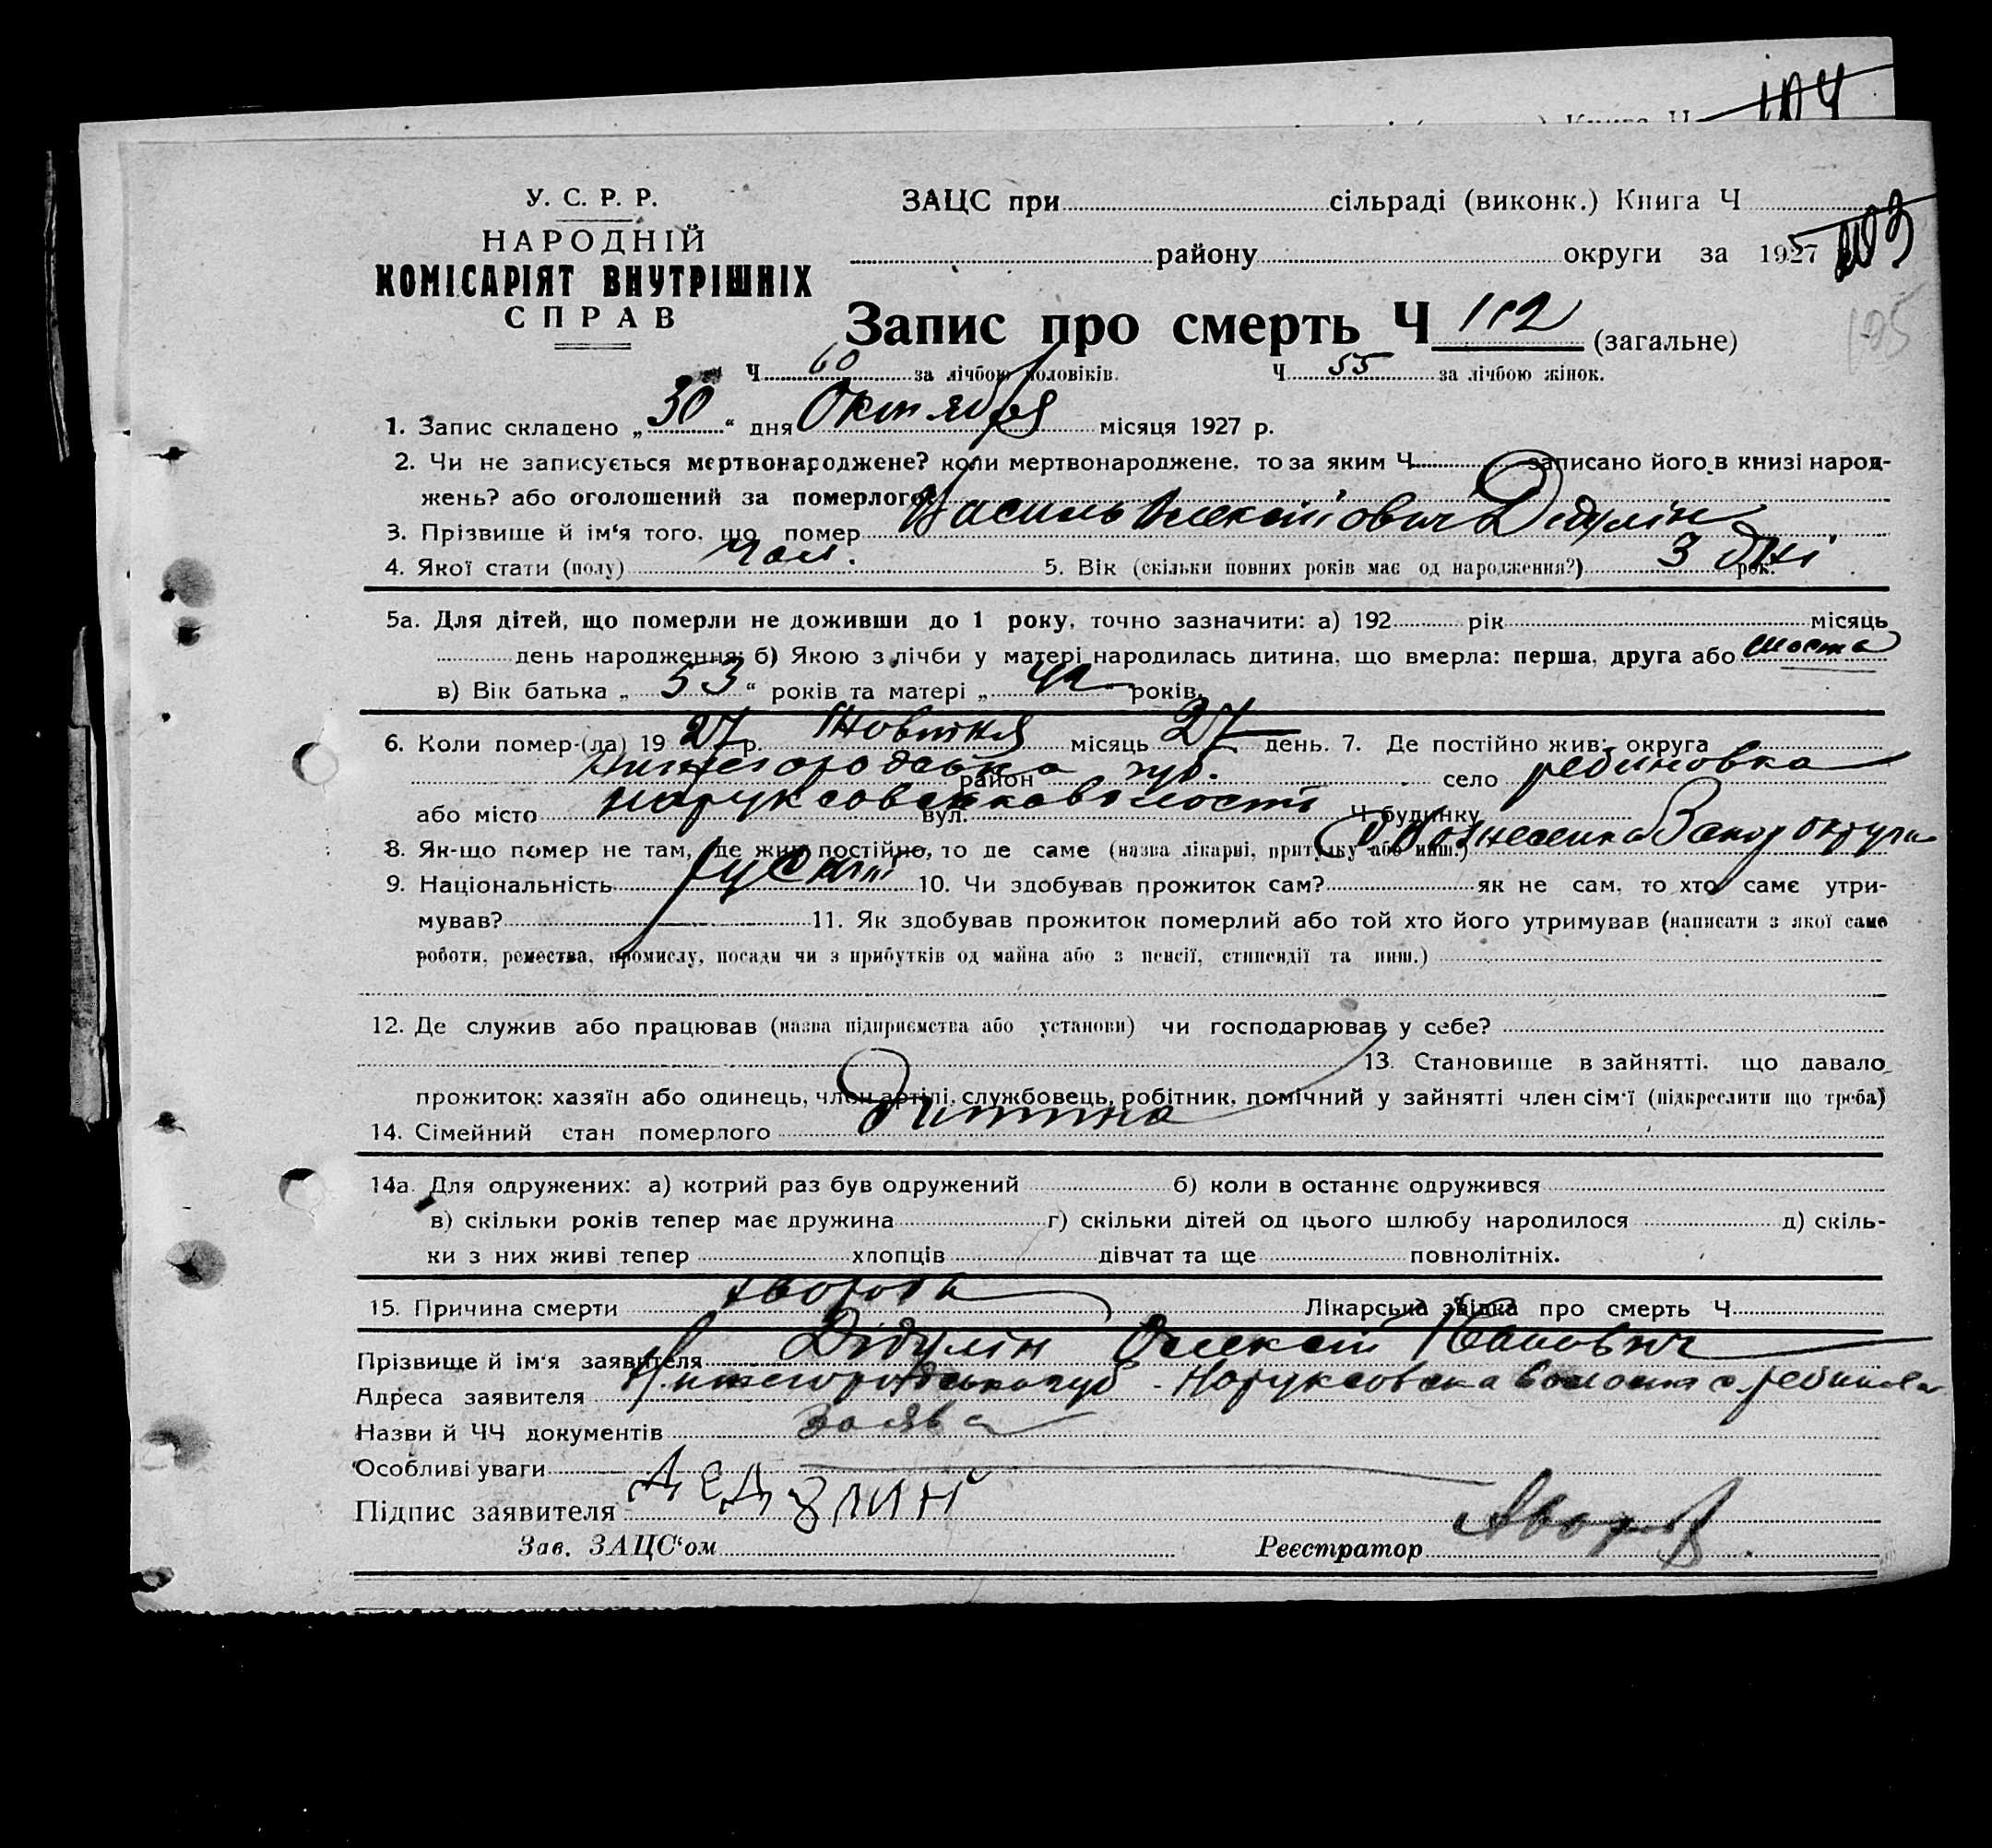 104
Книга Ч
У. С. Р. Р.
НАРОДНІЙ
КОМІСАРІЯТ ВНУТРІШНІХ
СПРАВ
ЗАЦС при сільраді (виконк.) Книга Ч
району округи за 1927
103
105
Запис про смерть Ч 112 (загальне)
Ч 60 за лічбою чоловіків. Ч 55 за лічбою жінок.
1. Запис складено „30“ дня Октября місяця 1927 р.
2. Чи не записується мертвонароджене? коли мертвонароджене, то за яким Ч записано його в книзі народ-
жень? або оголошений за померлого?
3. Прізвище й ім'я того, що помер Василь Олексійович Дідулін
4. Якої стати (полу) Чол. 5. Вік (скільки повних років має од народження?) 3 дні рок.
5а. Для дітей, що померли не доживши до 1 року, точно зазначити: а) 192 рік місяць
день народження; б) Якою з лічби у матері народилась дитина, що вмерла: перша, друга або шоста
в) Вік батька „53“ років та матері „42 років.
6. Коли помер-(ла) 1927 р. Жовтня місяць 27 день. 7. Де постійно жив: округа
Нижегородська губ. район село Ребиновка
або місто Наруксовська волости вул. Ч будинку
8. Як-що помер не там, де жив постійно, то де саме (назва лікарні, притулку або инш.) Вознесенка Запор округи
9. Національність руский 10. Чи здобував прожиток сам? як не сам, то хто саме утри-
мував? 11. Як здобував прожиток померлий або той хто його утримував (написати з якої саме
роботи, ремества, промислу, посади чи з прибутків од майна або з пенсії, стипендії та инш.)
12. Де служив або працював (назва підприємства або установи) чи господарював у себе?
13. Становище в зайнятті, що давало
прожиток: хазяїн або одинець, член артілі, службовець, робітник, помічний у зайнятті член сім'ї (підкреслити що треба)
14. Сімейний стан померлого Дитина
14а. Для одружених: а) котрий раз був одружений б) коли в останнє одружився
в) скільки років тепер має дружина г) скільки дітей од цього шлюбу народилося д) скіль-
ки з них живі тепер хлопців дівчат та ще повнолітніх.
15. Причина смерти Лікарська звідка про смерть Ч
Прізвище й ім'я заявителя Дідулін Олексій Іванович
Адреса заявителя Нижегородська губ - Наруксовська волости с. Ребиновка
Назви й ЧЧ документів заява
Особливі уваги
Підпис заявителя ДЕДУЛИН
Зав. ЗАЦС'ом Реєстратор